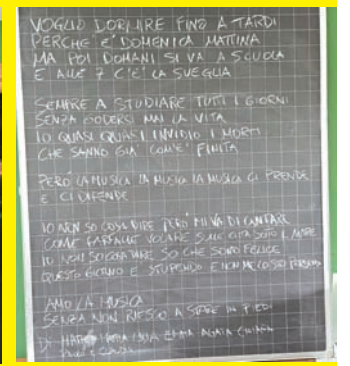 VOGLIO DORMIRE FINO A TARDI
PERCHE' E' DOMENICA MATTINA
MA POI DOMANI SI VA A SCUOLA
E ALLE 7 C'E' LA SVEGLIA
SEMPRE A STUDIARE TUTTI I GIORNI
SENZA GODERSI MAI LA VITA
IO QUASI QUASI INVIDIO I MORTI
CHE SANNO GIA' COM'E' FINITA
PERÒ LA MUSICA LA MUSICA LA MUSICA CI PRENDE
E CI DIFENDE
IO NON SO COSA DIRE PERÒ MI VA DI CANTARE
COME FARFALLE VOLARE SULLE CITTÀ SOTTO IL MARE
IO NON SO COSA FARE SO CHE SONO FELICE
QUESTO GIORNO E' STUPENDO E NON ME LO SO
AMO LA MUSICA
SENZA NON RIESCO A STARE IN PIEDI
DI MARIA EMMA AGATA